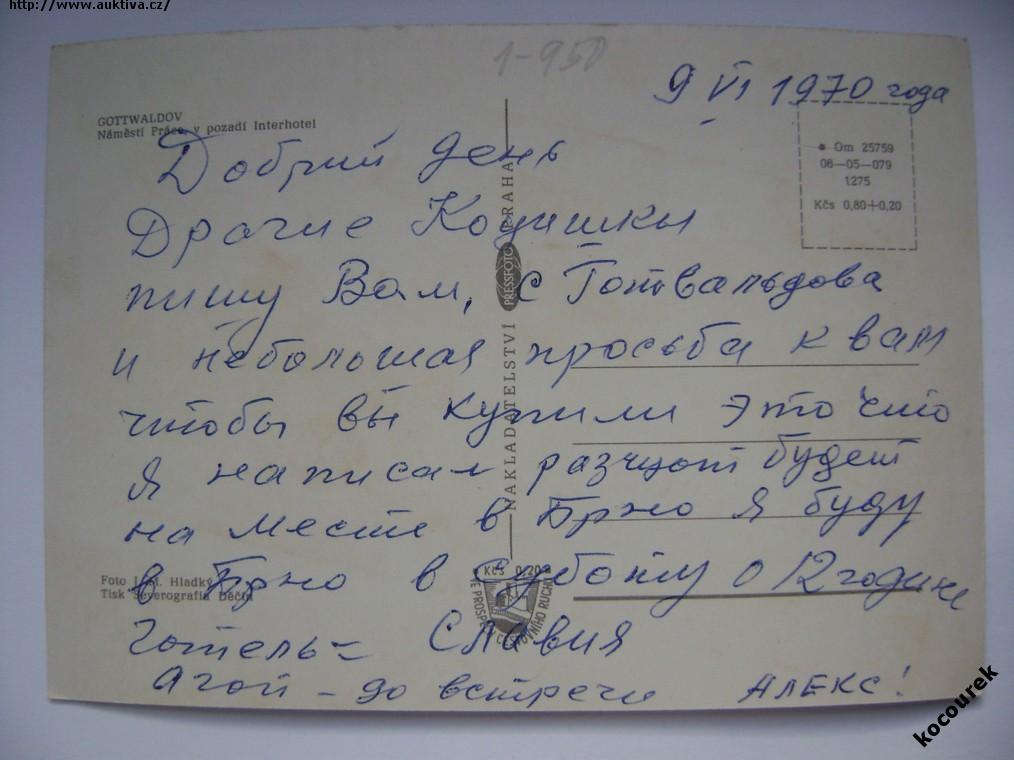 http://www.auktiva.cz/
1-950
9 VI 1970 года
GOTTWALDOV
Náměstí Práce, v pozadí Interhotel
Om 25759
06-05-079
1275
Kčs 0,80+0,20
Добрий день
Драгие Кодишки
пишу Вам, с Готвальдова
и небольшая просьба к вам
чтобы вы купили это что
я написал разщот будет
на месте в Брно я буду
в Брно в Суботу о 12 године
готель = СЛАВИЯ
Агой - до встречи АЛЕКС!
NAKLADATELSTVÍ PRESSFOTO PRAHA
Foto J. M. Hladký
Tisk Severografia Děčín
Kčs 0,20
VE PROSPĚCH CESTOVNÍHO RUCHU
kocourek